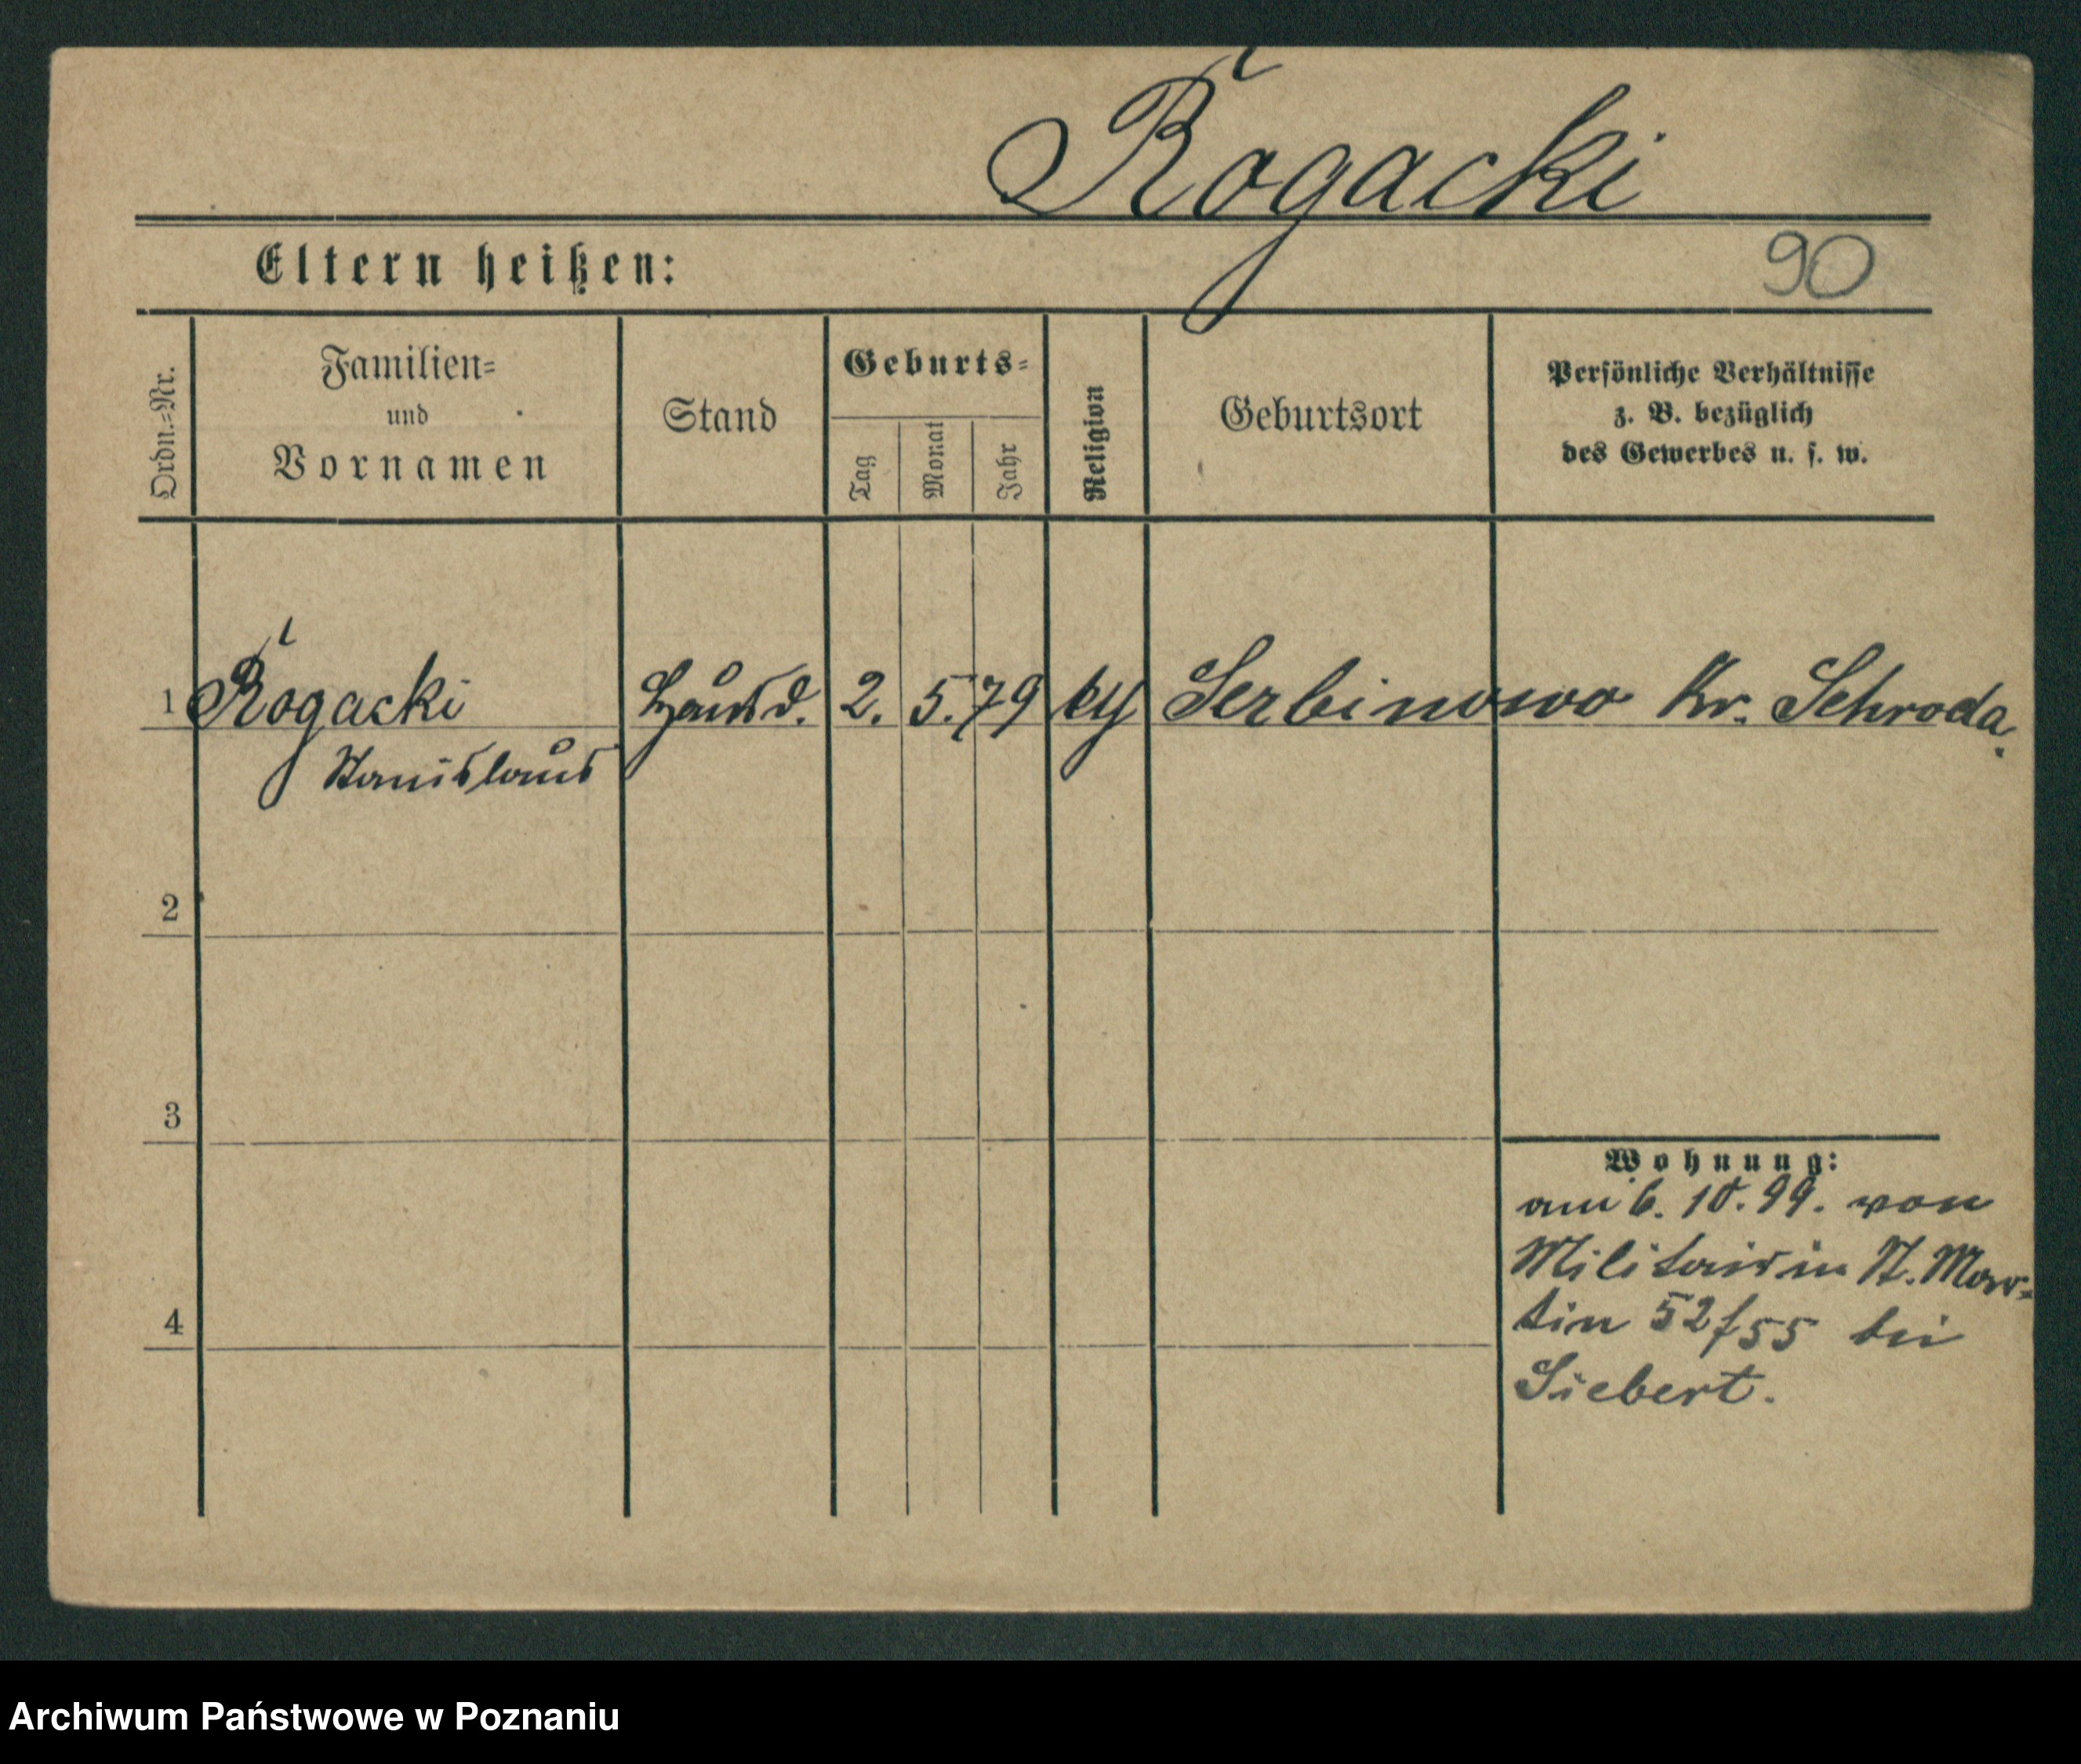 Rogacki
Eltern heißen:
90
Ordn.=Nr.
Familien=
und
Vornamen
Stand
Geburts=
Tag
Monat
Jahr
Religion
Geburtsort
Persönliche Verhältnisse
z. B. bezüglich
des Gewerbes u. s. w.
1 Rogacki Hausd. 2. 5. 79 Serbinowo Kr. Schroda
Stanislaus
2
3
4
Wohnung:
am 6. 10. 99. von
Militair in St. Mar=
tin 52/55 bei
Siebert.
Archiwum Państwowe w Poznaniu